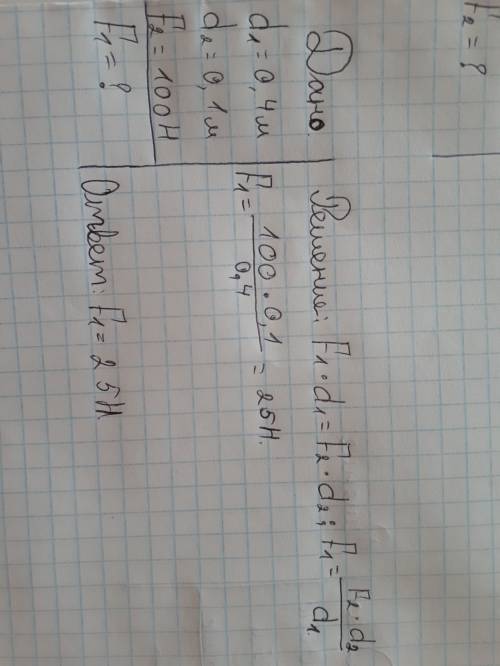 F₂ = ?
Дано.
d₁ = 0,4 м
d₂ = 0,1 м
F₂ = 100 Н
F₁ = ?
Решение: F₁ · d₁ = F₂ · d₂; F₁ = F₂ · d₂ / d₁.
F₁ = 100 · 0,1 / 0,4 = 25 Н.
Ответ: F₁ = 25 Н